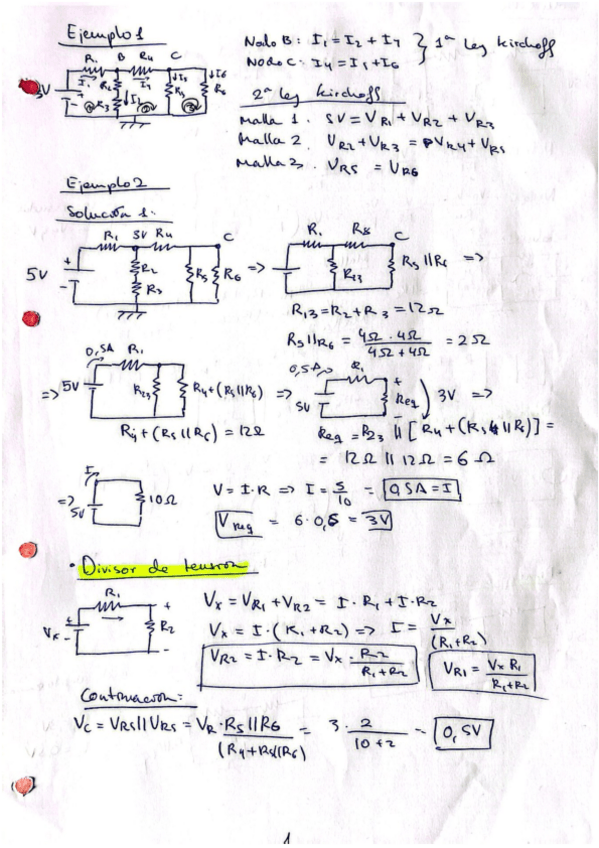 Ejemplo 1
R1 B R4 C
I1 R2 I4 I5 I6
5V R3 I2 R5 R6
Nodo B: I1 = I2 + I4 } 1ª Ley Kirchoff
Nodo C: I4 = I5 + I6
2ª Ley Kirchoff
Malla 1. 5V = VR1 + VR2 + VR3
Malla 2. VR2 + VR3 = VR4 + VR5
Malla 3. VR5 = VR6
Ejemplo 2
Solución 1:
R1 3V R4 C
5V R2 R3 R5 R6 =>
R1 R4 C
R23 R5||R6 =>
R13 = R2 + R3 = 12Ω
R5||R6 = 4Ω · 4Ω / 4Ω + 4Ω = 2Ω
0,5A R1
=> 5V R23 R4 + (R5||R6) =>
R4 + (R5||R6) = 12Ω
0,5A R1
5V Req 3V =>
Req = R23 || [R4 + (R5||R6)] =
= 12Ω || 12Ω = 6Ω
I
=> 5V 10Ω
V = I·R => I = 5/10 = 0,5A = I
VReq = 6·0,5 = 3V
· Divisor de tensión
R1
Vx R2
Vx = VR1 + VR2 = I·R1 + I·R2
Vx = I·(R1+R2) => I = Vx/(R1+R2)
VR2 = I·R2 = Vx · R2/R1+R2
VR1 = Vx R1/R1+R2
Continuación:
Vc = VR5||VR5 = VR · R5||R6/(R4+R5||R6) = 3 · 2/10+2 = 0,5V
1